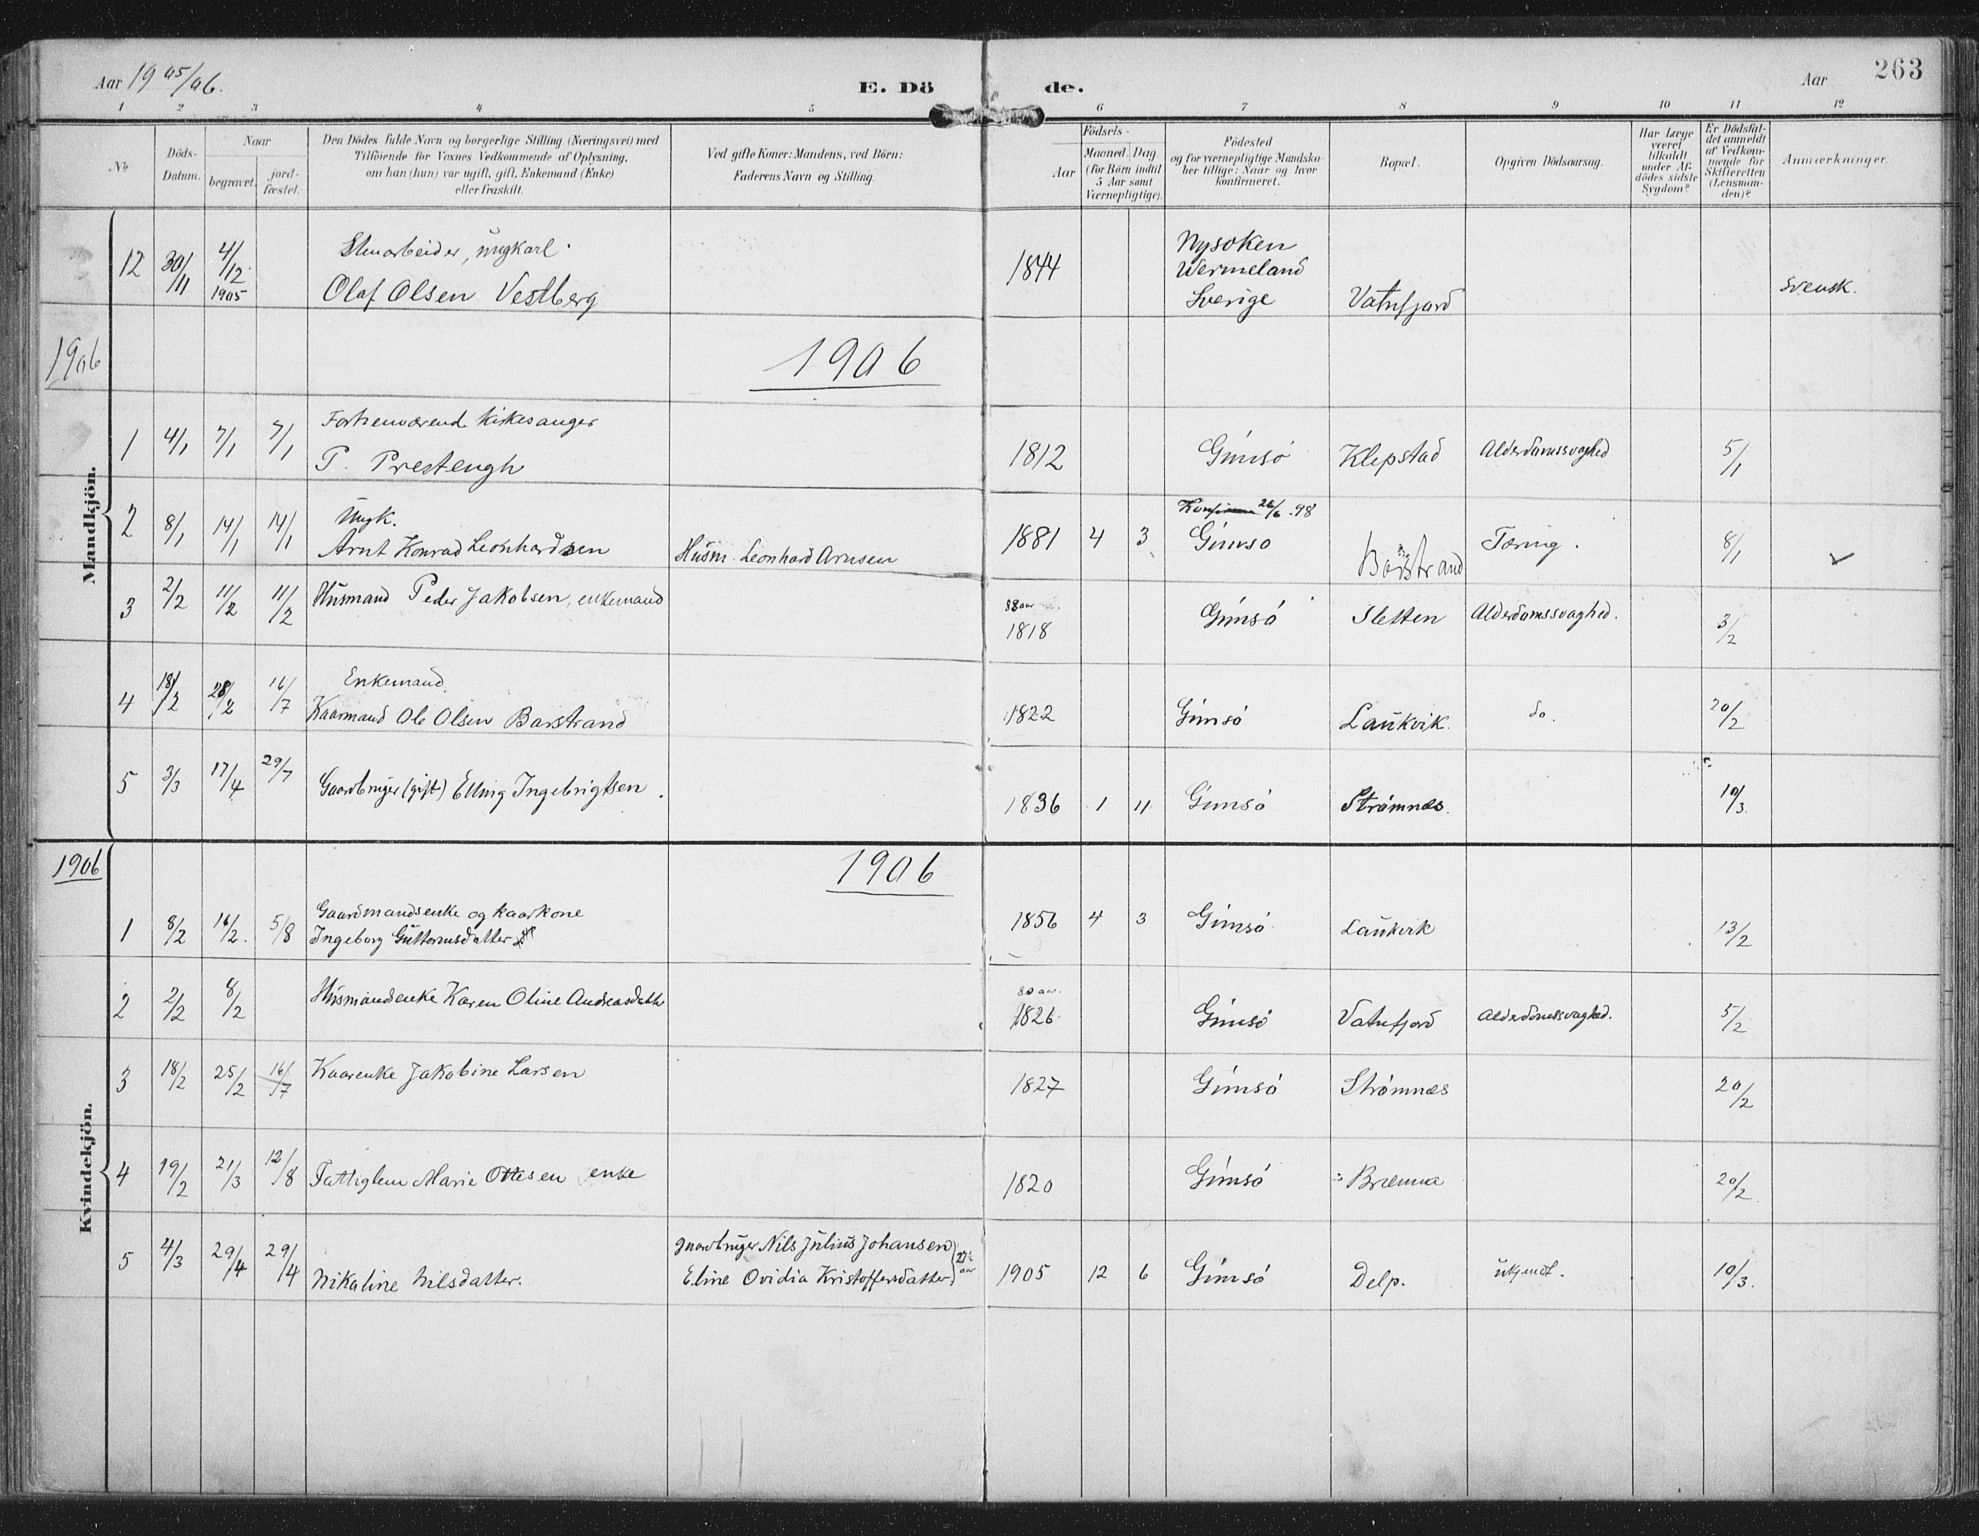 Aar 1905/06.
E. Dö de.
Aar
263
1 2 3 4 5 6 7 8 9 10 11 12
No
Döds-Datum.
Naar
begravet.
jord-fæstet.
Den Dödes fulde Navn og borgerlige Stilling (Næringsvei) med
Tilföiende for Voxnes Vedkommende af Oplysning,
om han (hun) var ugift, gift, Enkemand (Enke)
eller fraskilt.
Ved gifte Koner: Mandens, ved Börn:
Faderens Navn og Stilling.
Födsels-
Aar
Maaned. Dag
(for Börn indtil
5 Aar samt
Værnepligtige).
Födested
og for værnepligtige Mandska-
ber tillige: Naar og hvor
konfirmeret.
Bopæl.
Opgiven Dödsaarsag.
Har Læge
været
tilkaldt
under Af-
dödes sidste
Sygdom?
Er Dödsfal-
det anmeldt
af Vedkom-
mende for
Skifteretten
(Lensman-
den)?
Anmærkninger.
Mandkjön.
12 30/11 4/12 1905 Stenarbeider, ungkarl. Olaf Olsen Vestberg 1844 Nysoken Wermeland Sverige Vatnfjord svensk.
1906 1906
1 4/1 7/1 7/1 Forhenværend Kirkesanger P. Prestengh 1812 Gimsö Klepstad Alderdomssvaghed 5/1
2 8/1 14/1 14/1 Ungk. Arnt Konrad Leonhardsen Husm. Leonhard Arnsen 1881 4 3 26/6 .98 Gimsö Barstrand Tæring. 8/1
3 2/2 11/2 11/2 Husmand Peder Jakobsen, enkemand 88 aar 1818 Gimsö Sletten Alderdomssvaghed. 3/2
4 18/2 28/2 16/7 Enkemand. Kaarmand Ole Olsen Barstrand 1822 Gimsö Laukvik. do. 20/2
5 3/3 17/4 29/7 Gaardbruger (gift) Elling Ingebrigtsen. 1836 1 11 Gimsö Strömnes. 10/3
1906 1906
Kvindekjön.
1 8/2 16/2. 5/8 Gaardmandsenke og kaarkone Ingeborg Guttormsdatter 1856 4 3 Gimsö Laukvik 13/2
2 2/2 8/2 Husmandenke Karen Oline Andreasdatt 80 aar. 1826 Gimsö Vatnfjord Alderdomssvaghed. 5/2
3 18/2 25/2 16/7 Kaarenke Jakobine Larsen 1827 Gimsö Strömnæs 20/2
4 19/2 21/3 12/8 Fattiglem Marie Ottesen enke 1820 Gimsö Brenna 20/2
5 4/3 29/4 29/4 Nikaline Nilsdatter. gaardbruger Nils Julius Johansen Eline Ovidia Kristoffersdatter 1905 12 6 Gimsö Delp. ukjendt. 10/3.